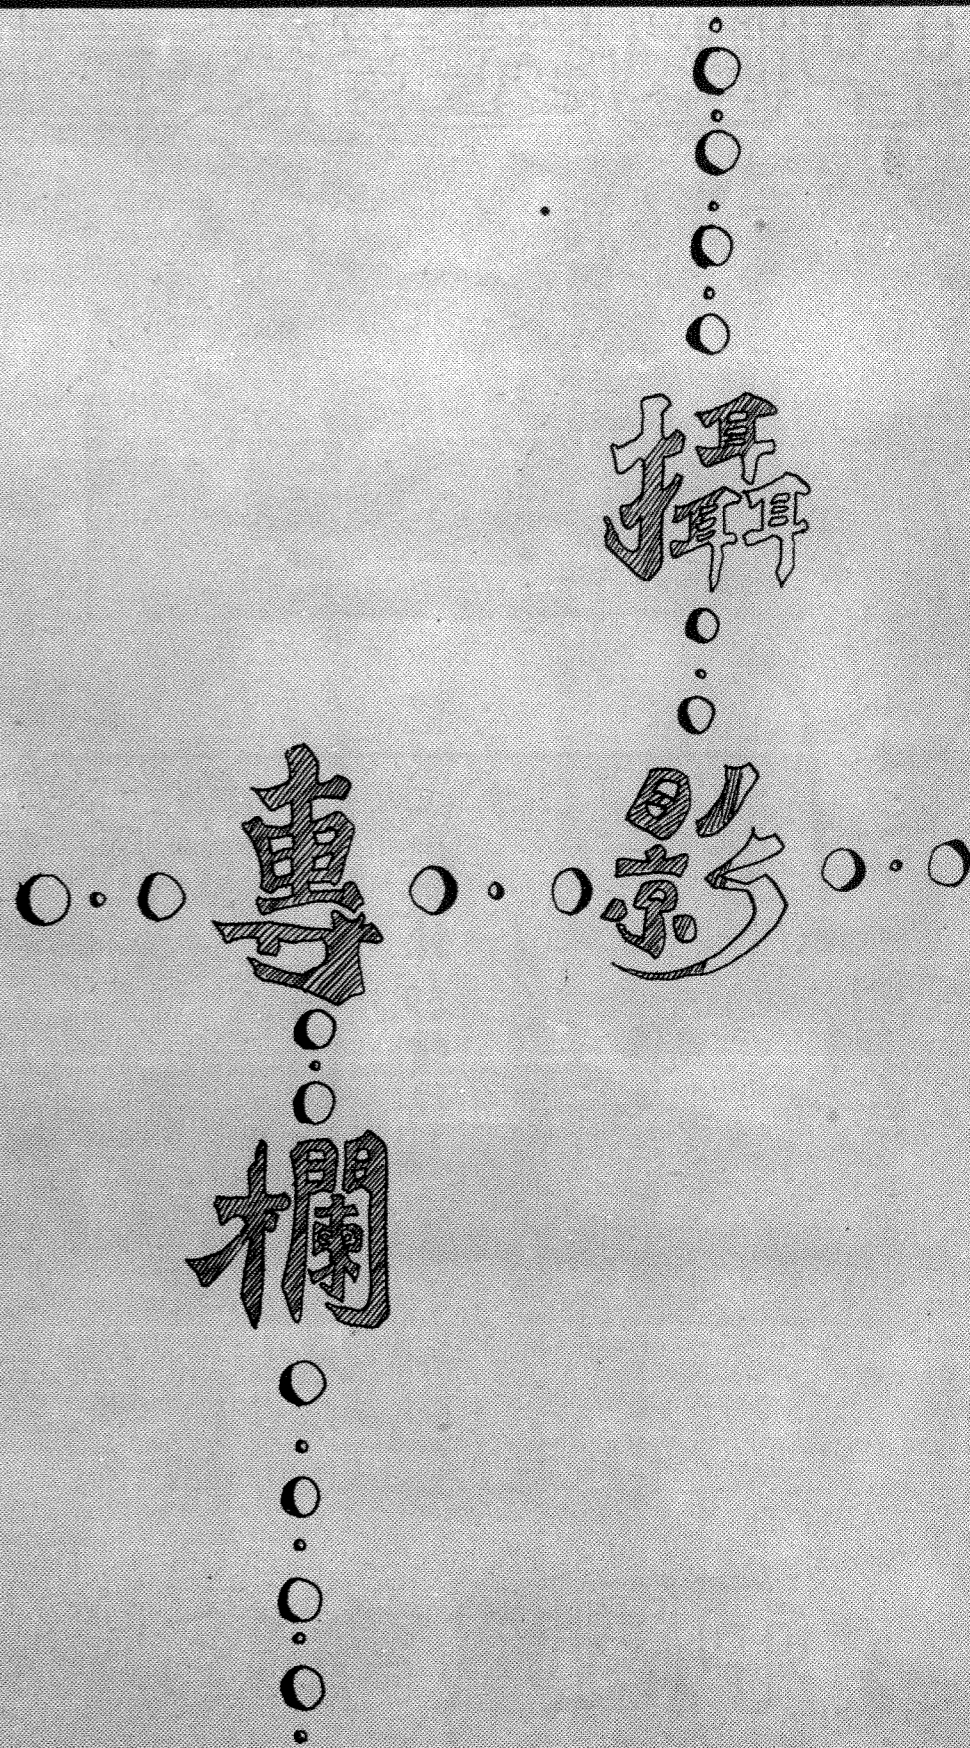 攝影
專欄